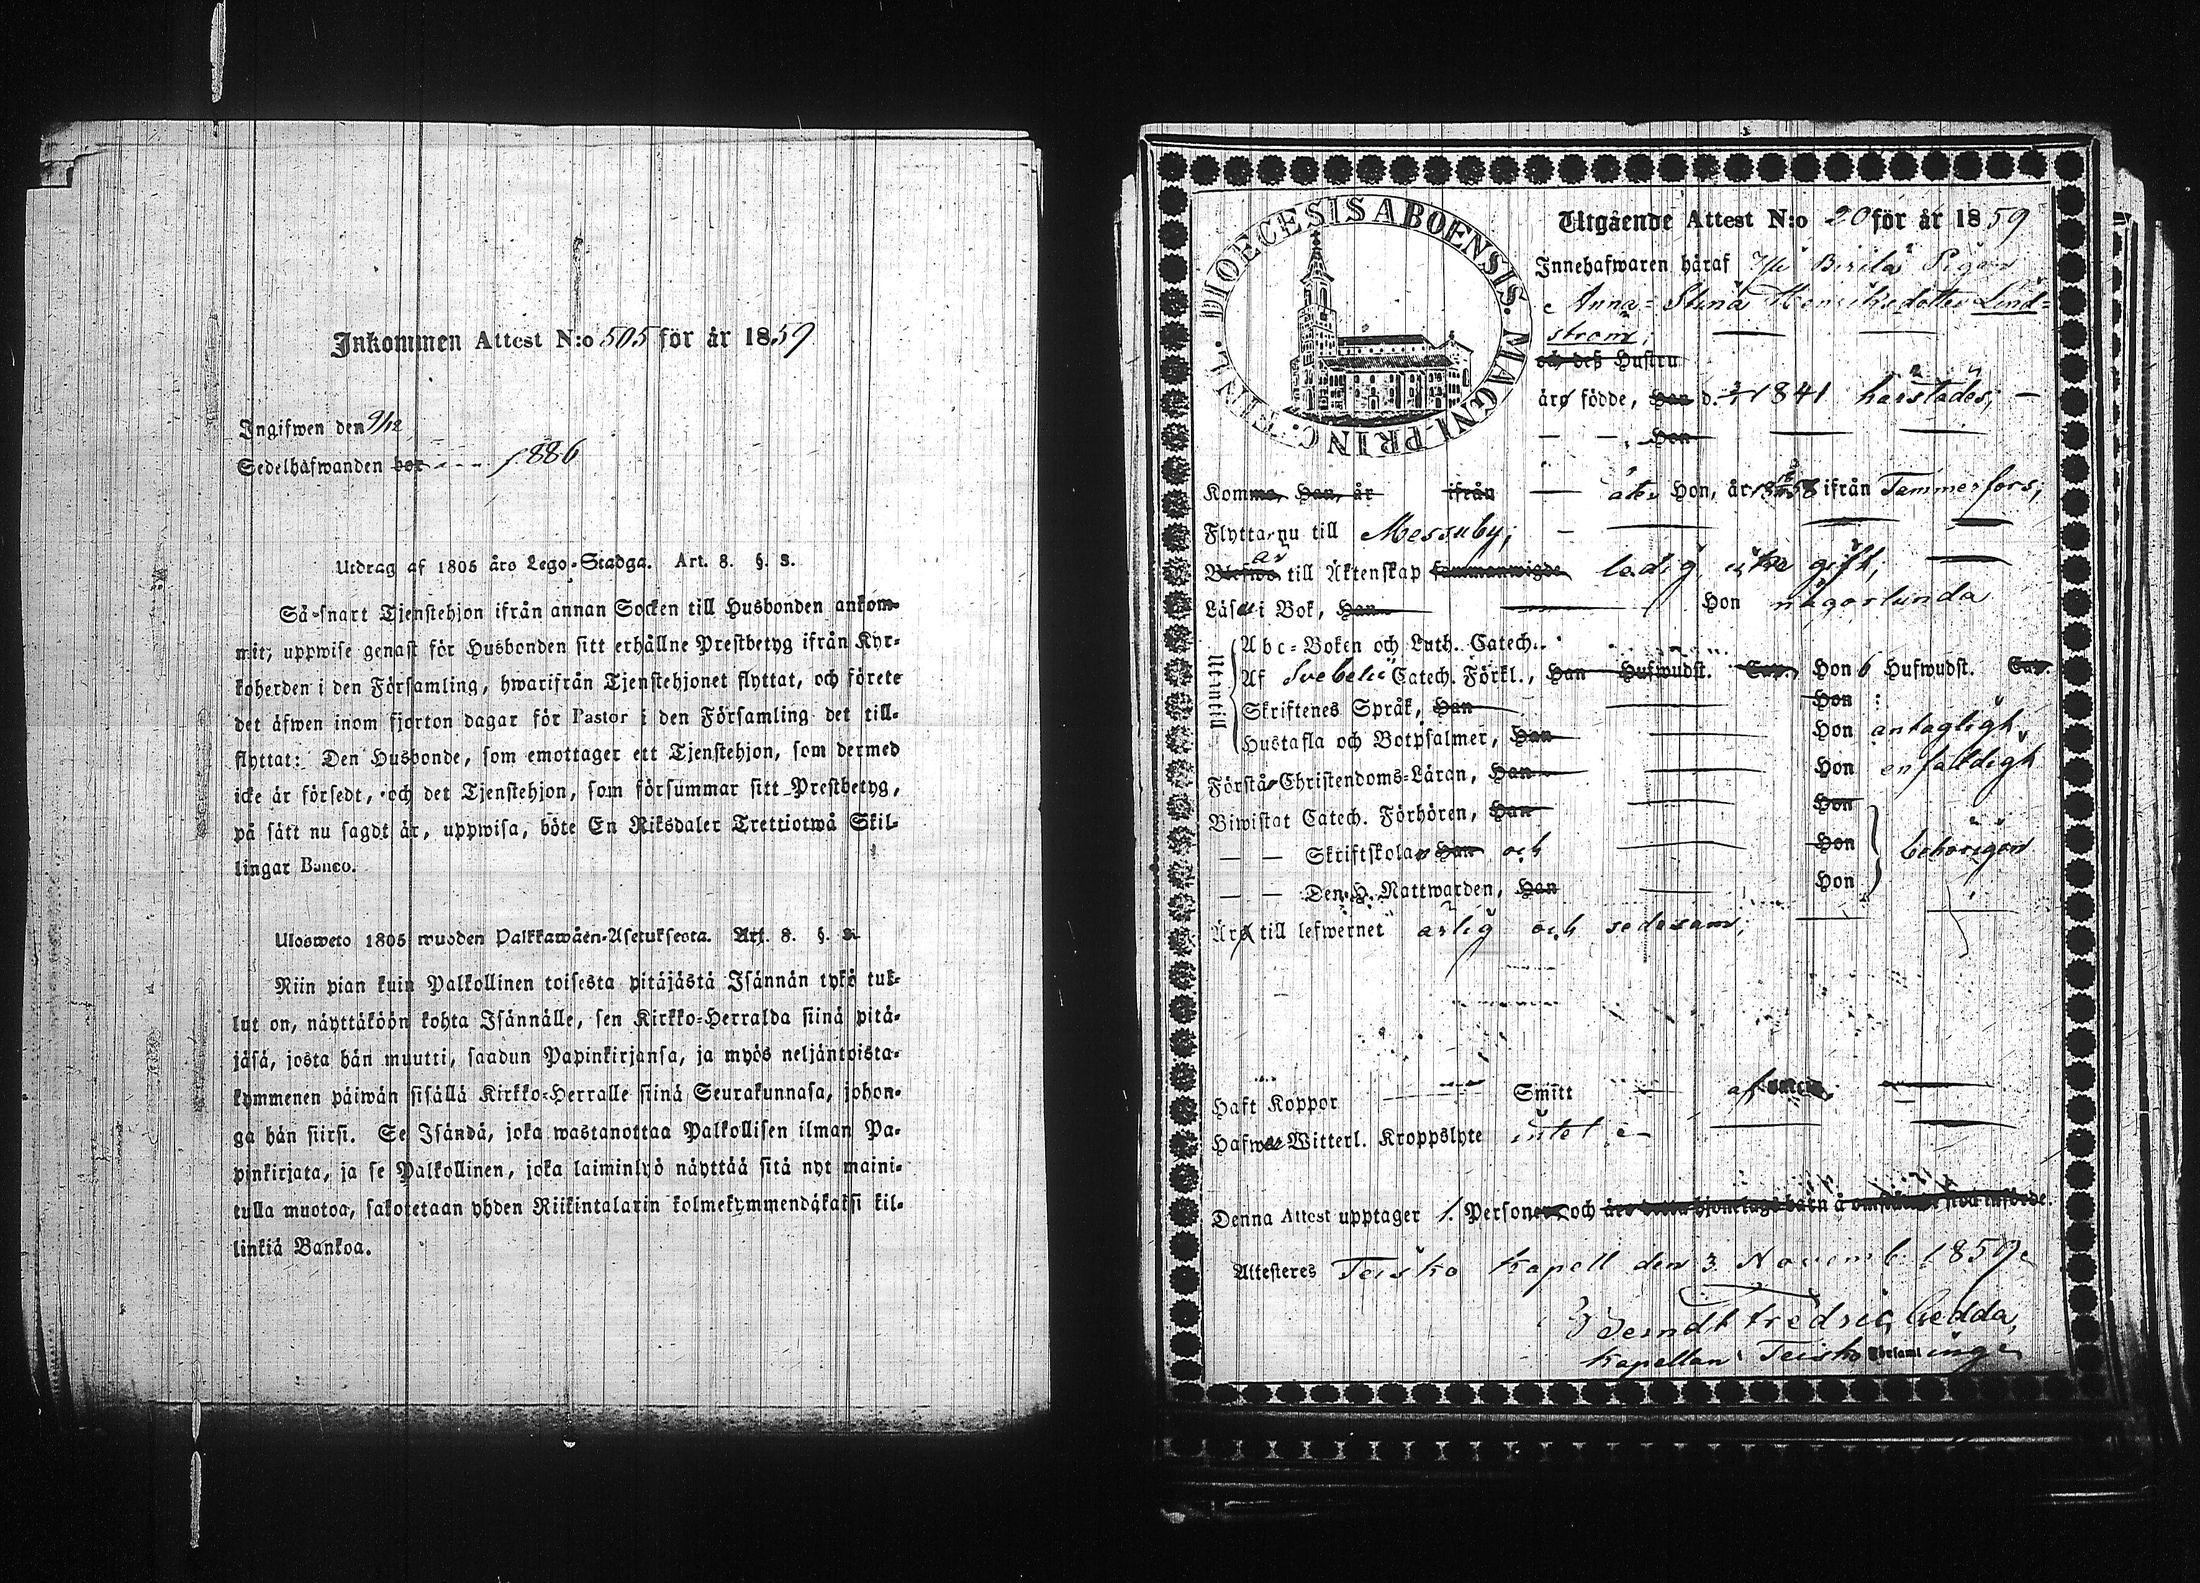 Inkommen Attest N:o 505 för år 1859
Ingifwen den 9/12
Sedelhafwanden bor - - - f 886
Utdrag af 1805 års Lego-Stadga. Art. 8. §. 3.
Så-snart Tjenstehjon ifrån annan Socken till Husbonden ankom-
mit, uppwise genast för Husbonden sitt erhållne Prestbetyg ifrån Kyr-
koherden i den Församling, hwarifrån Tjenstehjonet flyttat, och förete
det äfwen inom fjorton dagar för Pastor i den Församling det till-
flyttat: Den Husbonde, som emottager ett Tjenstehjon, som dermed
icke är försedt, och det Tjenstehjon, som försummar sitt Prestbetyg,
på sätt nu sagdt är, uppwisa, böte En Riksdaler Trettiotwå Skil-
lingar Banco.
Ulosweto 1805 wuoden Palkkawäen-Asetuksesta. Art. 8. §. 3.
Niin pian kuin Palkollinen toisesta pitäjästä Isännän tykö tul-
lut on, näyttäköön kohta Isännälle, sen Kirkko-Herralda siinä pitä-
jäsä, josta hän muutti, saadun Papinkirjansa, ja myös neljäntoista-
kymmenen päiwän sisällä Kirkko-Herralle siinä Seurakunnasa, johon-
ga hän siirsi. Se Isändä, joka wastanottaa Palkollisen ilman Pa-
pinkirjata, ja se Palkollinen, joka laiminlyö näyttää sitä nyt maini-
tulla muotoa, sakotetaan yhden Riikintalarin kolmekymmendäkaksi kil-
linkiä Bankoa.
DIOECESIS ABOENSIS. MAGNI. PRINC. FINL.
Utgående Attest N:o 20 för år 1859
Innehafwaren häraf Birila Pigan
Anna Stina Henriksdotter Lind-
ström;
och deß Hustru
äro födde, Han d. 1841 härstädes; —
— — Hon — —
Komma, Han, år ifrån — åter Hon, år 1858 ifrån Tammerfors;
Flytta nu till Messuby; — — — —
Blefwo är till Äktenskap sammanwigde ledig, icke gift; —
Läsa i Bok, Han — — Hon någorlunda
Utantill
Abc-Boken och Luth. Catech.
Af Svebelii Catech. Förkl., Han Hufwudst. Cap. Hon 6 Hufwudst. Cap.
Skriftenes Språk, Han — — Hon
Hustafla och Botpsalmer, Han — — Hon antagligt
Förstå Christendoms-Läran, Han — — Hon enfaldigt
Biwistat Catech. Förhören, Han — — Hon
— — Skriftskolan Han och — Hon behörigen
— — Den H. Nattwarden, Han — Hon
Är till lefwernet ärlig och sedesam; — —
Haft Koppor Smitt — af —
Hafwa Witterl. Kroppslyte intet — —
Denna Attest upptager 1. Personer, och
Attesteres Teisko Kapell den 3 Novemb. 1859.
Berndt Fredric Gedda,
Kapellan i Teisko Församl